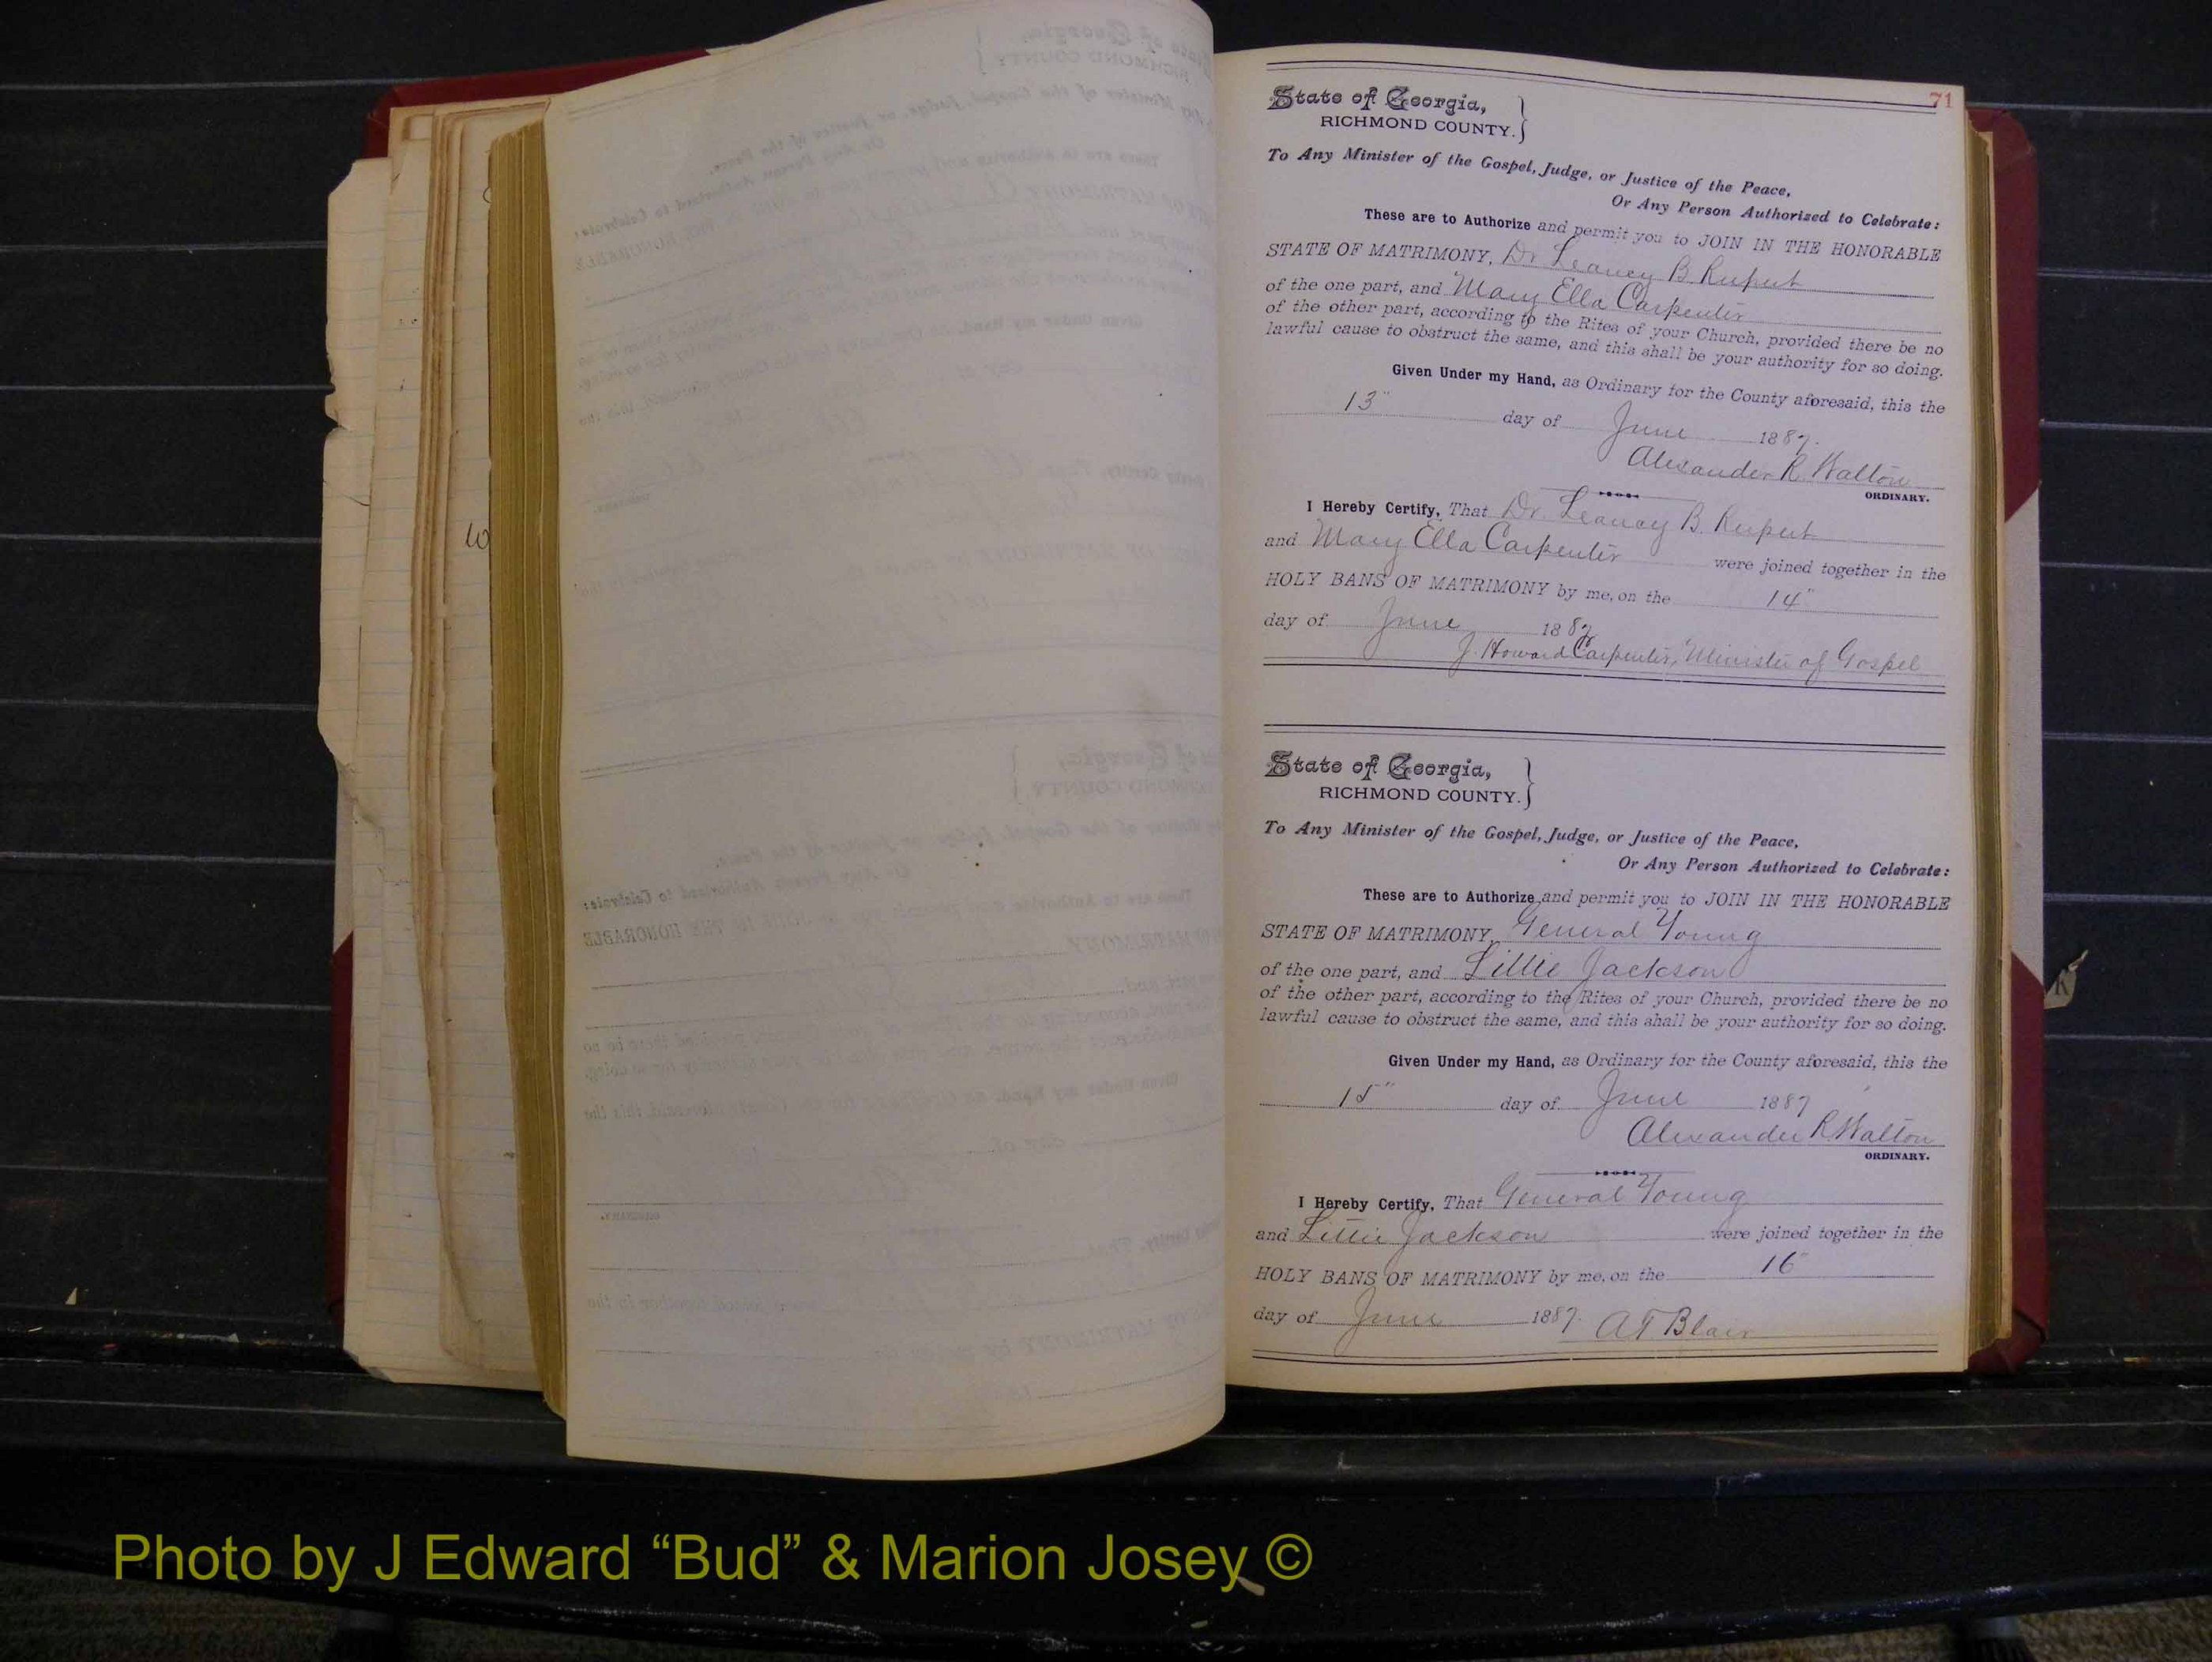 71
State of Georgia,
RICHMOND COUNTY.
To Any Minister of the Gospel, Judge, or Justice of the Peace,
Or Any Person Authorized to Celebrate:
These are to Authorize and permit you to JOIN IN THE HONORABLE
STATE OF MATRIMONY, Dr B. Rupert
of the one part, and Mary Ella Carpenter
of the other part, according to the Rites of your Church, provided there be no
lawful cause to obstruct the same, and this shall be your authority for so doing.
Given Under my Hand, as Ordinary for the County aforesaid, this the
13" day of June 1887.
Alexander R. Walton
ORDINARY.
I Hereby Certify, That Dr. B. Rupert
and Mary Ella Carpenter were joined together in the
HOLY BANS OF MATRIMONY by me, on the 14"
day of June 1887
J. Howard Carpenter, Minister of Gospel
State of Georgia,
RICHMOND COUNTY.
To Any Minister of the Gospel, Judge, or Justice of the Peace,
Or Any Person Authorized to Celebrate:
These are to Authorize and permit you to JOIN IN THE HONORABLE
STATE OF MATRIMONY, General Young
of the one part, and Lillie Jackson
of the other part, according to the Rites of your Church, provided there be no
lawful cause to obstruct the same, and this shall be your authority for so doing.
Given Under my Hand, as Ordinary for the County aforesaid, this the
15" day of June 1887
Alexander R Walton
ORDINARY.
I Hereby Certify, That General Young
and Lillie Jackson were joined together in the
HOLY BANS OF MATRIMONY by me, on the 16"
day of June 1887. AT Blair
K
Photo by J Edward “Bud” & Marion Josey ©